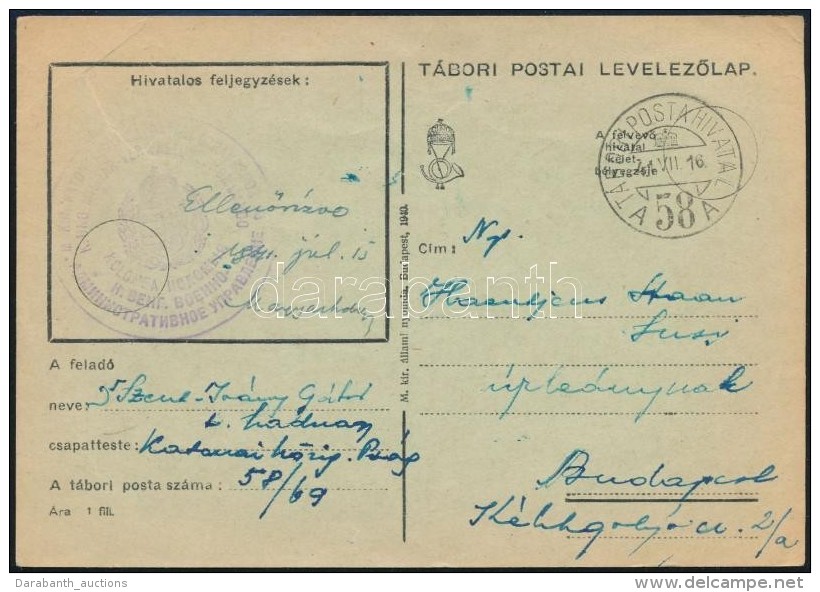 Hivatalos feljegyzések:
Ellenőrizve
1941. júl. 15
ADMINISZTРАТИВНОЕ УПРАВЛЕНИЕ
TÁBORI POSTAI LEVELEZŐLAP.
A felvevő
hivatal
kelet-
bélyegzője
TÁBORI POSTAHIVATAL
41 VII. 16.
A 58 A
Cím:
Ng.
Susi
úrleánynak
Budapest
Kékgolyó u. 2/a
M. kir. állami nyomda, Budapest, 1940.
A feladó
neve: Szent-Iványi Gábor
t. hadnagy
csapatteste: Katonai közig. Pság
A tábori posta száma: 58/69
Ára 1 fill.
darabanth
Darabanth_auctions
www.delcampe.net